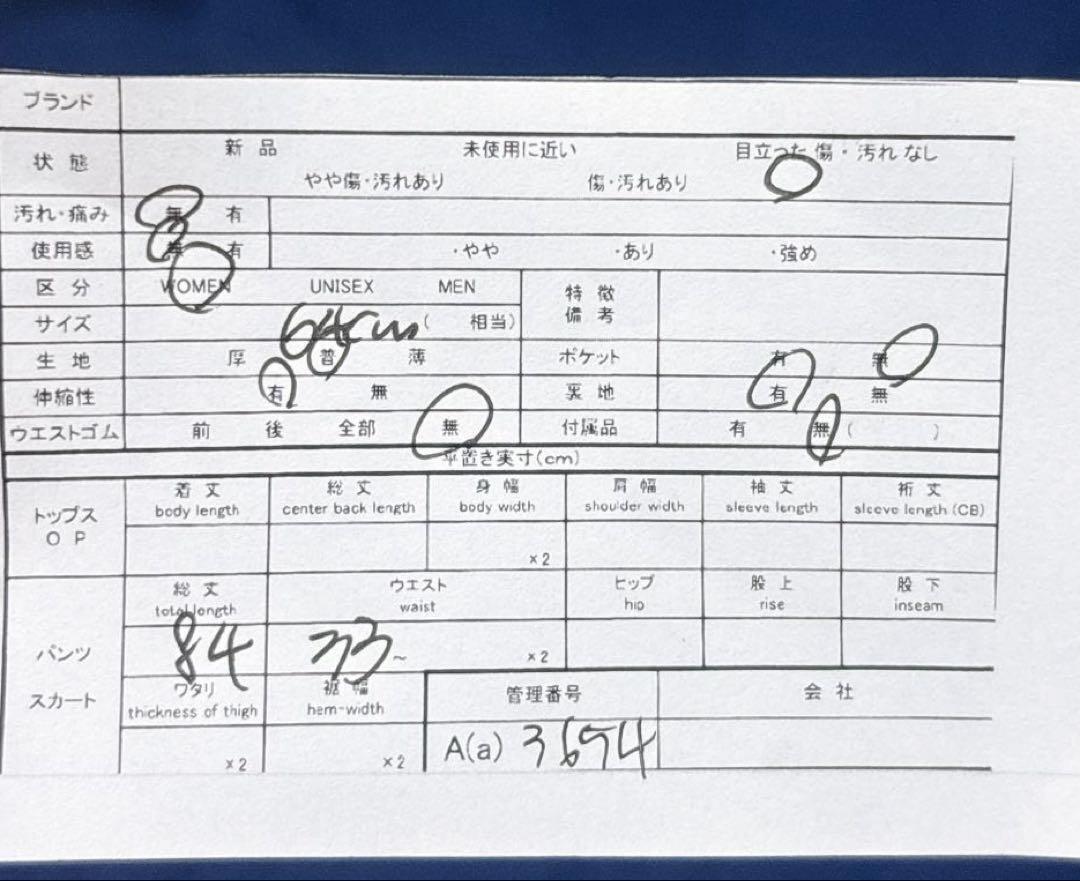 ブランド
状 態 新 品 未使用に近い 目立った 傷・汚れ なし
やや傷・汚れあり 傷・汚れあり
汚れ・痛み 無 有
使用感 無 有 ・やや ・あり ・強め
区 分 WOMEN UNISEX MEN 特 徴
備 考
サイズ 64cm ( 相当)
生 地 厚 普 薄 ポケット 有 無
伸縮性 有 無 裏 地 有 無
ウエストゴム 前 後 全部 無 付属品 有 無 ( )
平置き実寸(cm)
トップス
O P
着 丈 総 丈 身 幅 肩 幅 袖 丈 裄 丈
body length center back length body width shoulder width sleeve length sleeve length (CB)
×2
パンツ
スカート
総 丈 ウエスト ヒップ 股 上 股 下
total length waist hip rise inseam
84 33~ ×2
ワタリ 裾 幅 管理番号 会 社
thickness of thigh hem-width
×2 ×2 A(a)